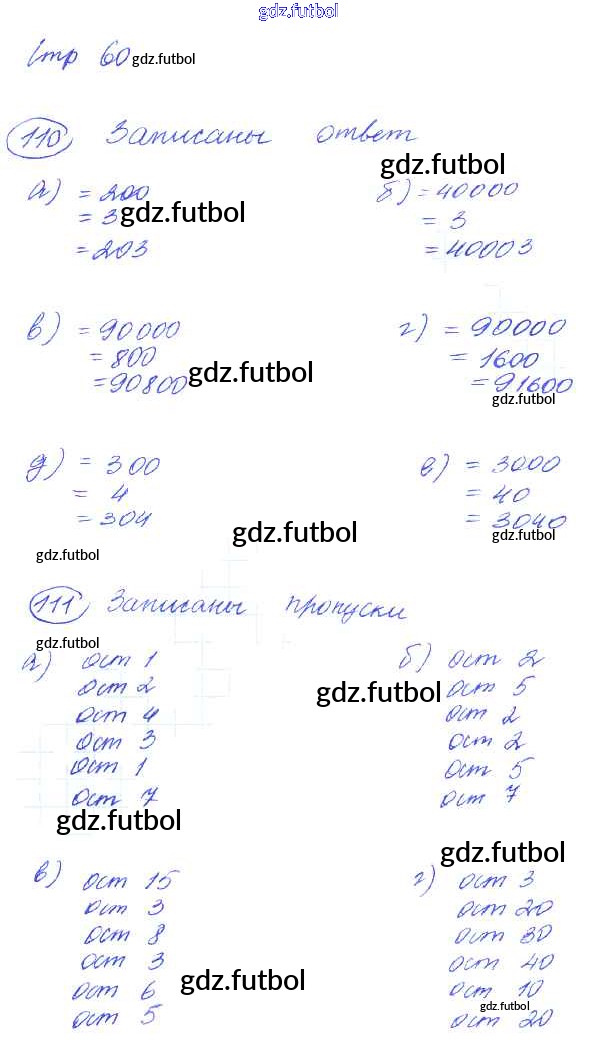 gdz.futbol
Стр 60 gdz.futbol
110 Записаны ответ
gdz.futbol
а) = 200 б) = 40000
= 3 gdz.futbol = 3
= 203 = 40003
в) = 90000 г) = 90000
= 800 = 1600
= 90800 gdz.futbol = 91600
gdz.futbol
д) = 300 е) = 3000
= 4 = 40
= 304 = 3040
gdz.futbol gdz.futbol
gdz.futbol
111 Записаны пропуски
gdz.futbol
а) ост 1 б) ост 2
ост 2 gdz.futbol ост 5
ост 4 ост 2
ост 3 ост 2
ост 1 ост 5
ост 7 ост 7
gdz.futbol
gdz.futbol
в) ост 15 г) ост 3
ост 3 ост 20
ост 8 ост 30
ост 3 ост 40
ост 6 gdz.futbol ост 10
gdz.futbol
ост 5 ост 20